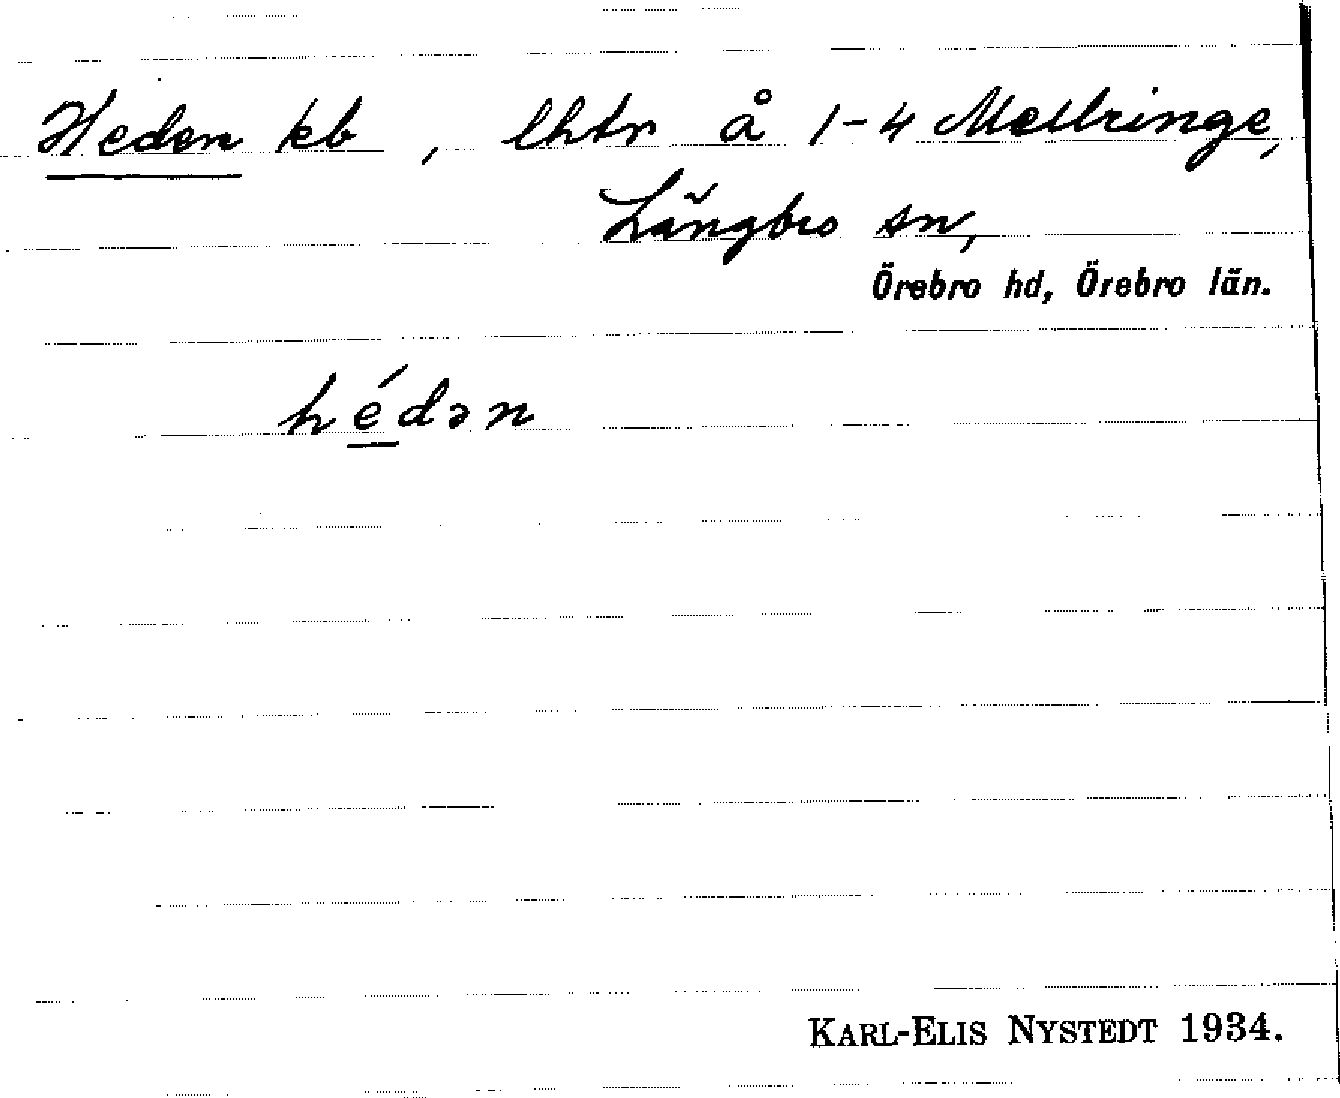 Heden kb, lhtr å 1-4 Mellringe,
Längbro sn,
Örebro hd, Örebro län.
hédən
KARL-ELIS NYSTEDT 1934.